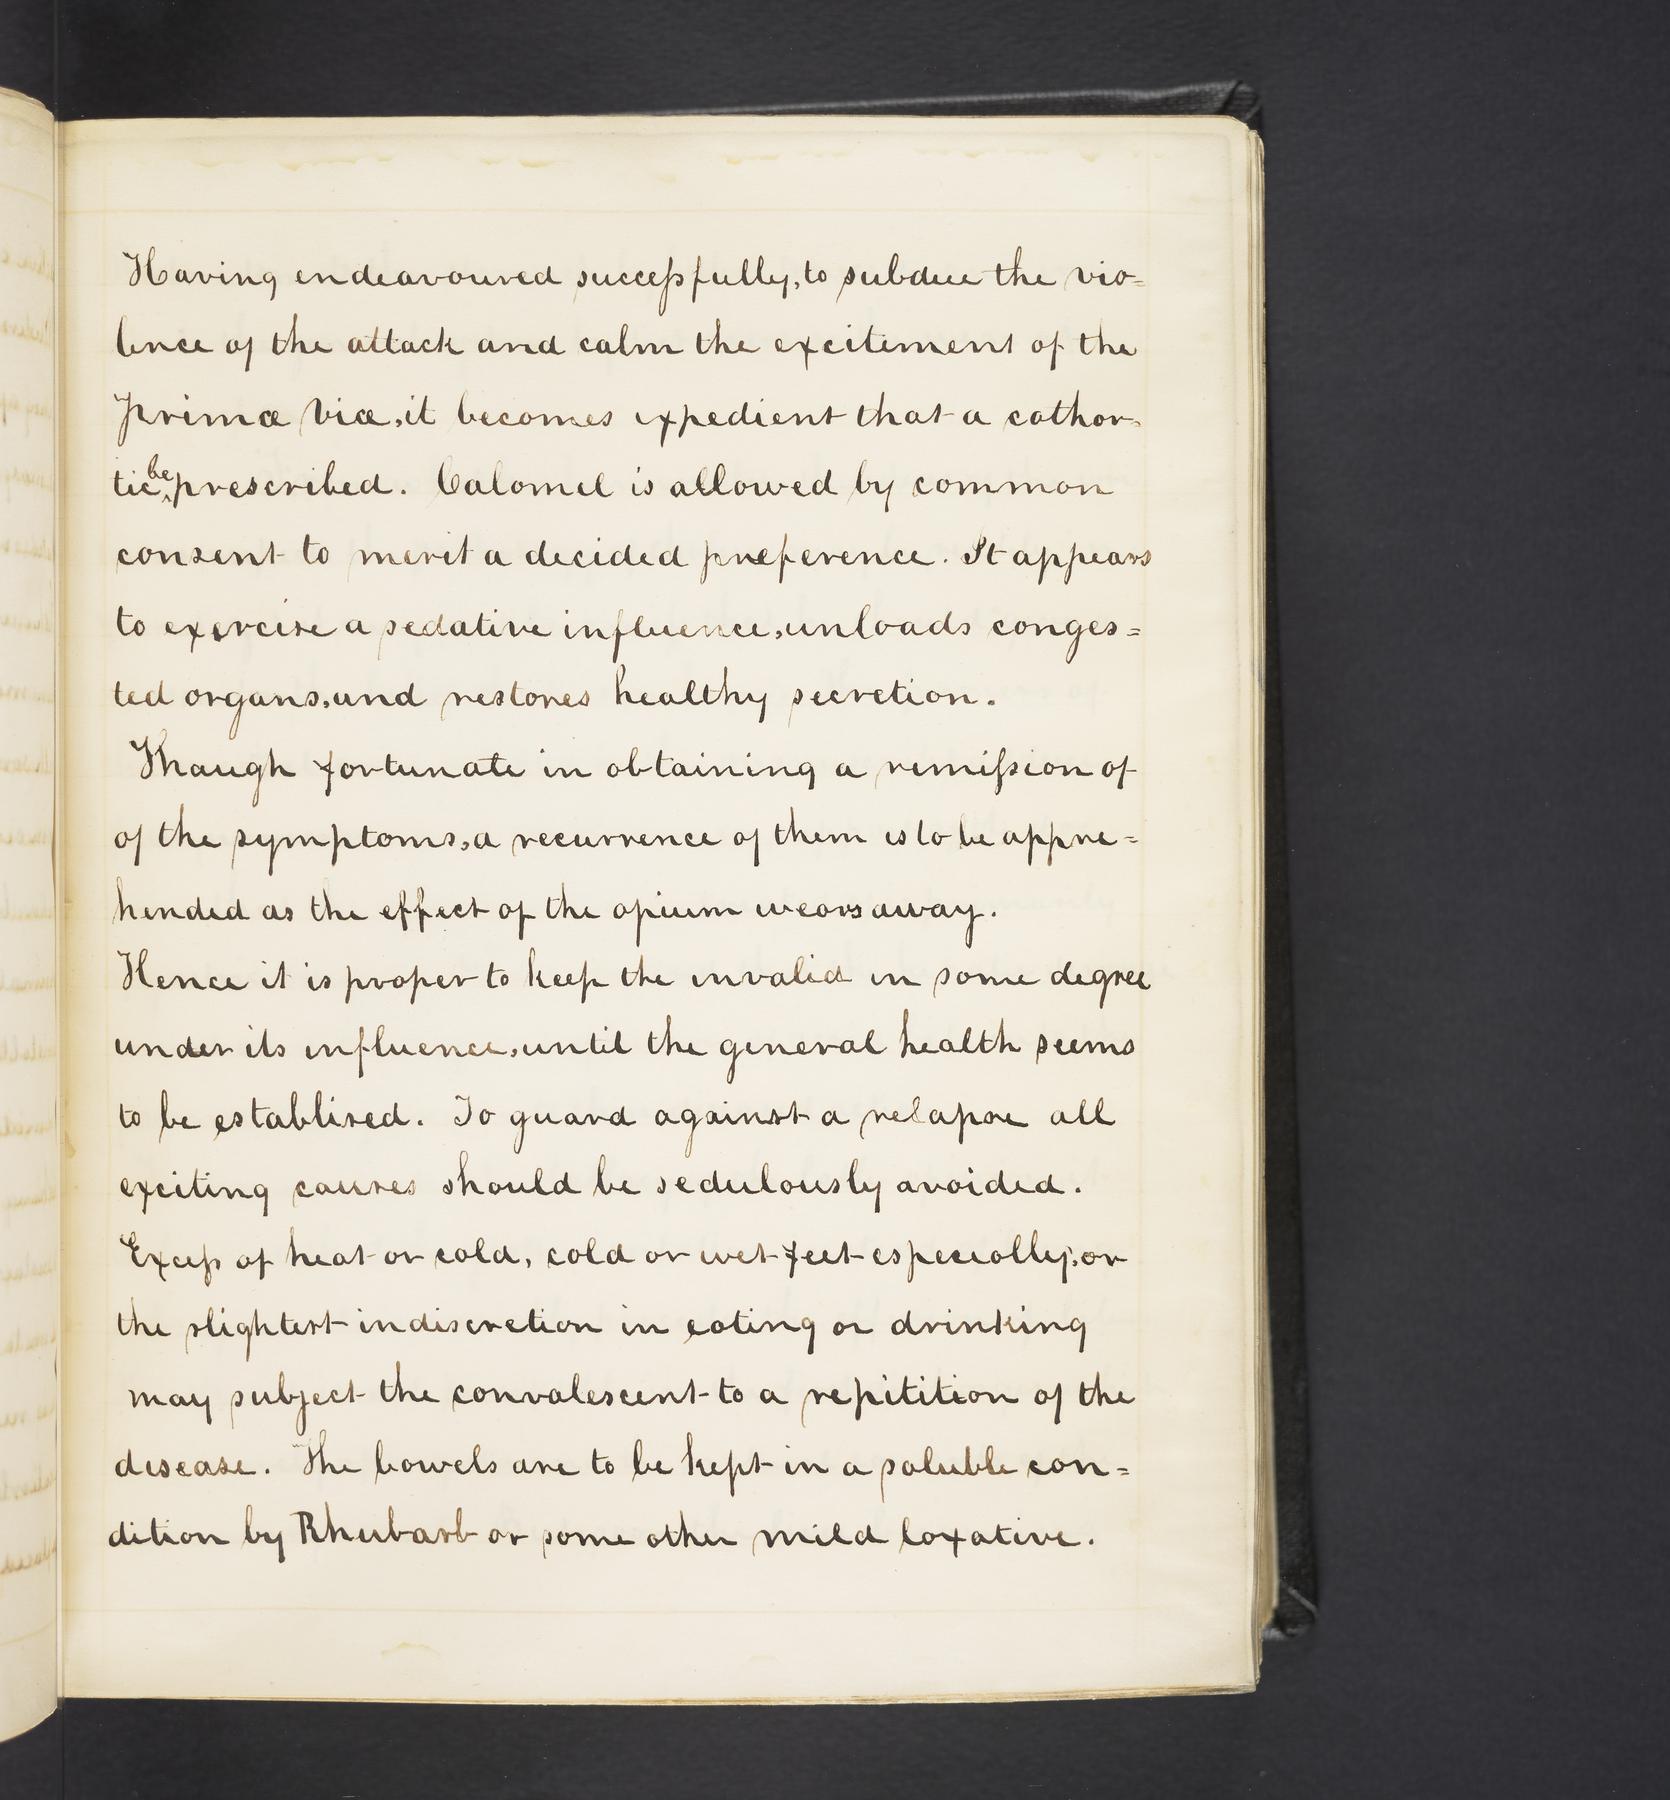 Having endeavoured successfully, to subdue the vio=
lence of the attack and calm the excitement of the
Primæ Viæ, it becomes expedient that a cathar-
tic be prescribed. Calomel is allowed by common
consent to merit a decided preference. It appears
to exercise a sedative influence, unloads conges=
ted organs, and restores healthy secretion.
Though fortunate in obtaining a remission of
of the symptoms, a recurrence of them is to be appre=
hended as the effect of the opium wears away.
Hence it is proper to keep the invalid in some degree
under its influence, until the general health seems
to be establised. To guard against a relapse all
exciting causes should be sedulously avoided.
Excess of heat or cold, cold or wet feet especially; or
the slightest indiscretion in eating or drinking
may subject the convalescent to a repitition of the
disease. The bowels are to be kept in a soluble con=
dition by Rhubarb or some other mild laxative.